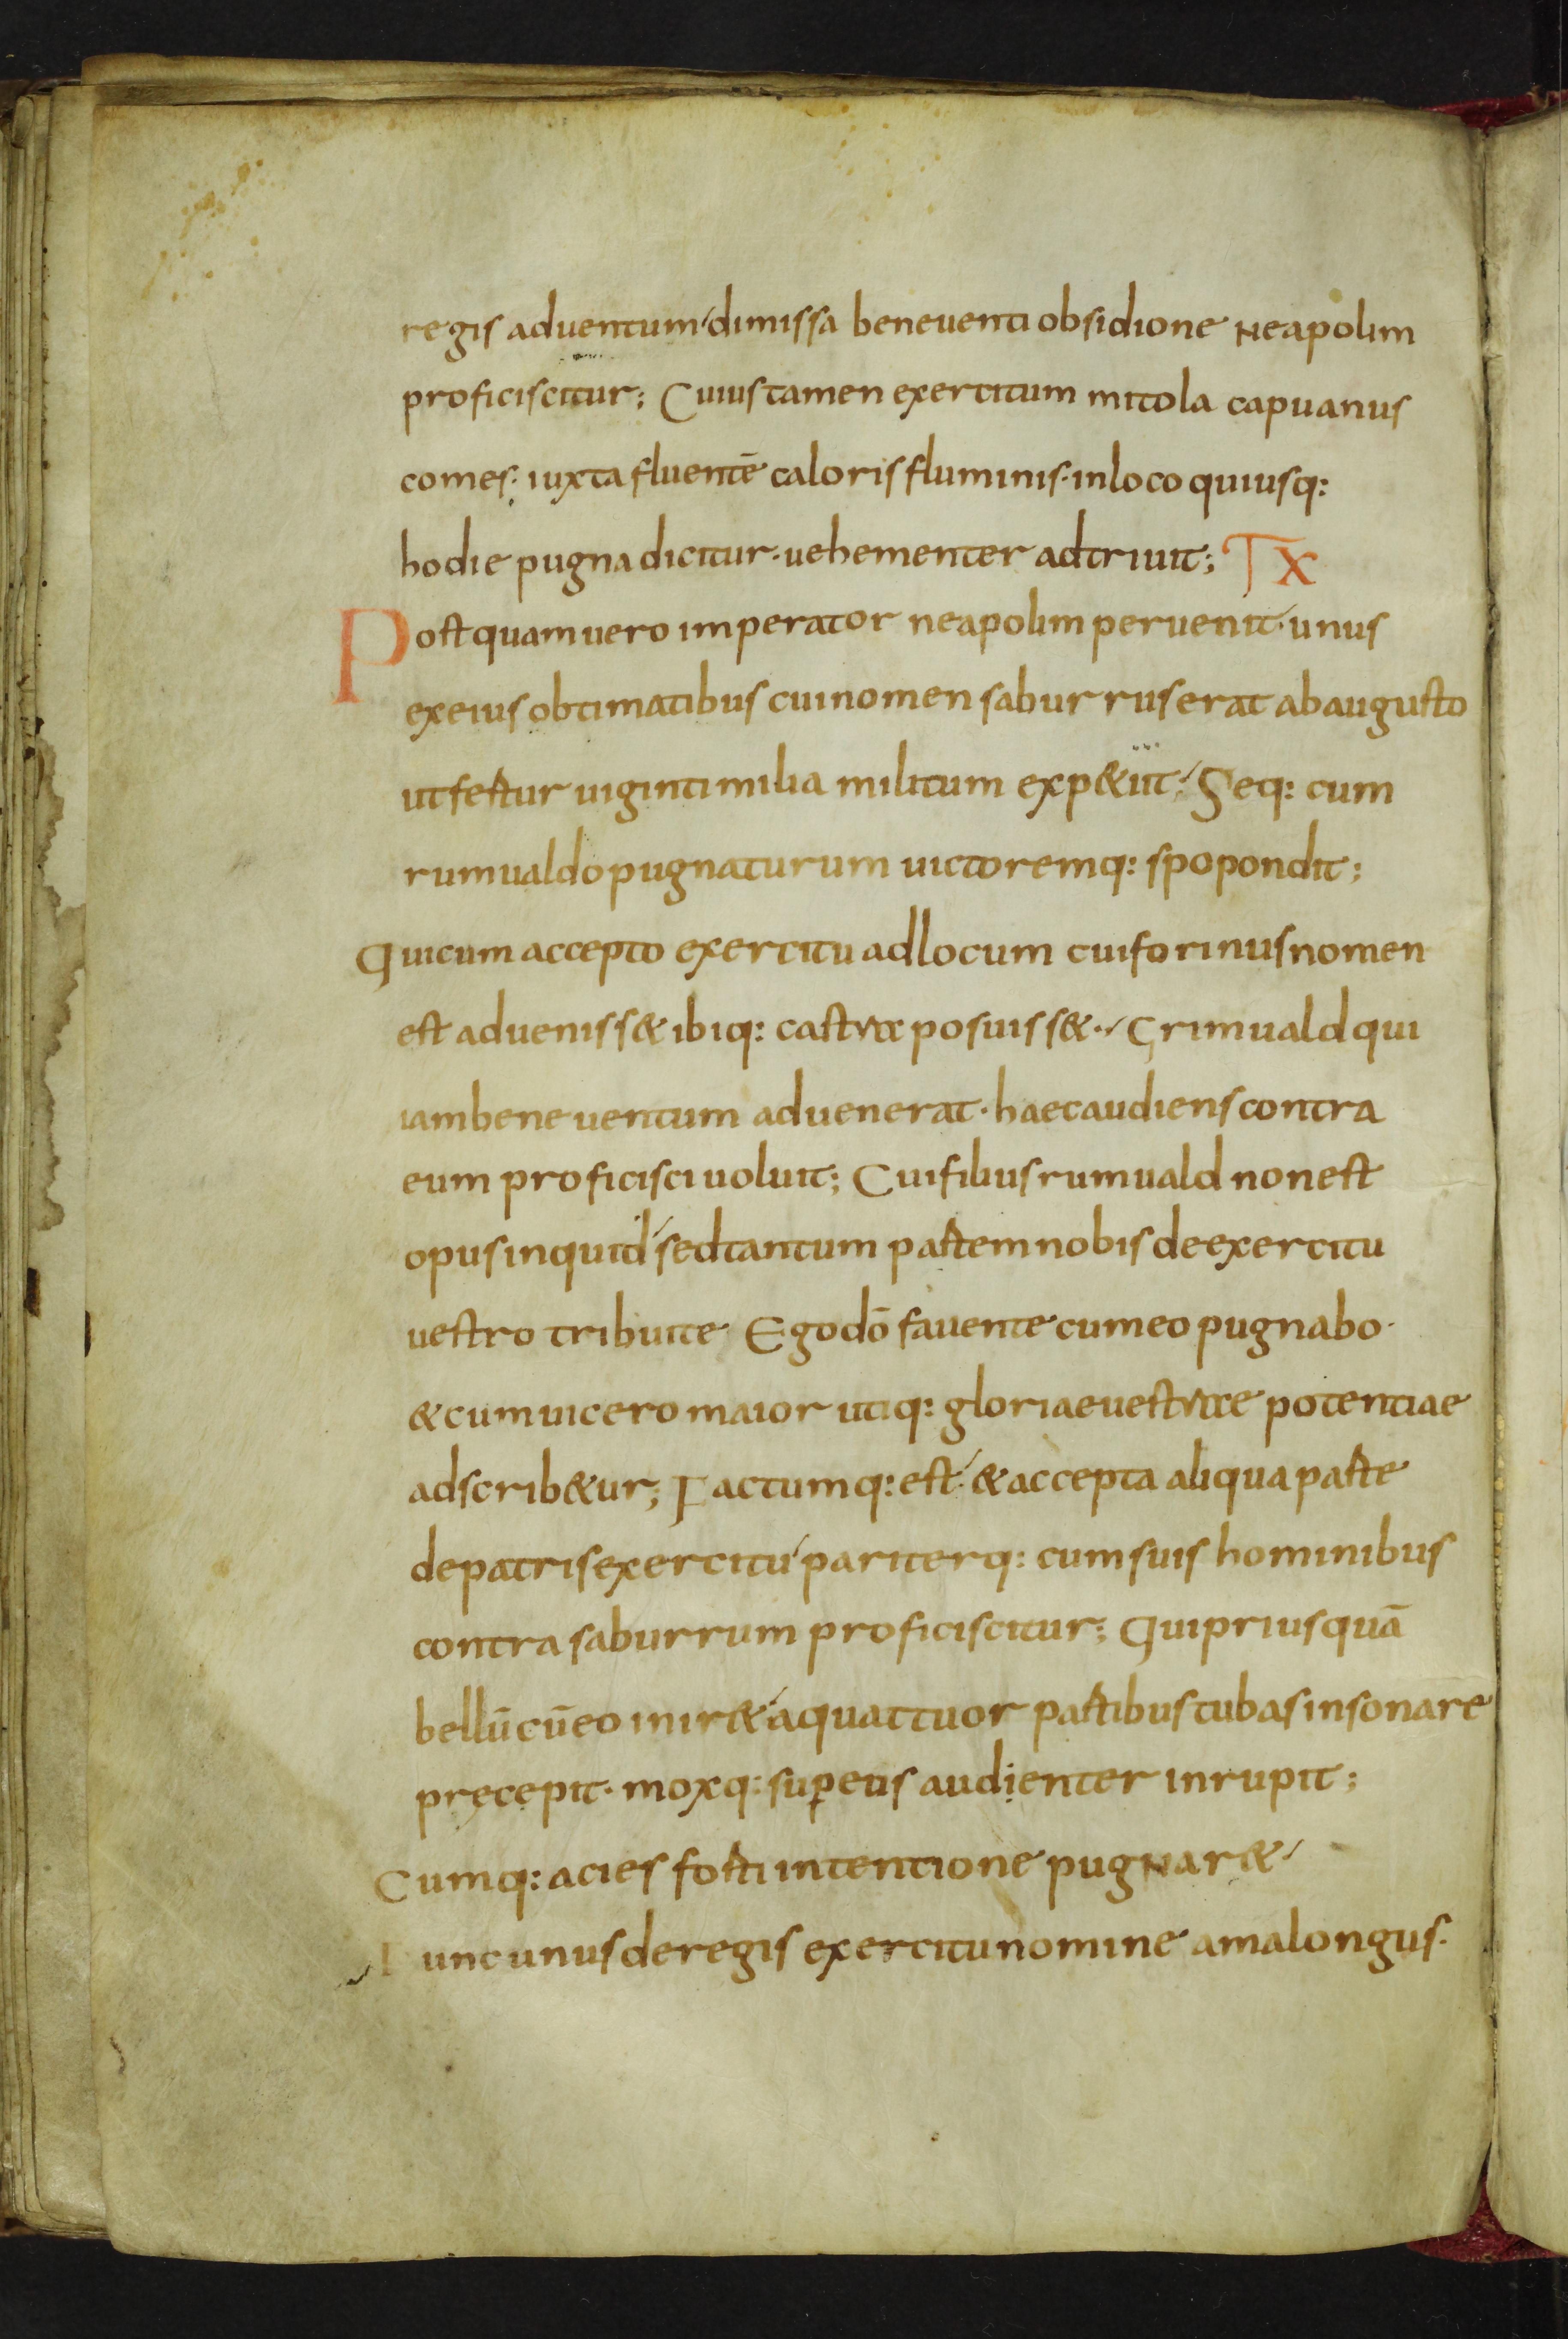 regis aduentum dimissa beneuenti obsidione neapolim
proficiscitur; Cuius tamen exercitum mitola capuanus
comes· iuxta fluentē caloris fluminis· in loco qui usq:
hodie pugna dicitur· uehementer adtriuit; IX
Postquam uero imperator neapolim peruenit· unus
ex eius obtimatibus cui nomen saburrus erat ab augusto
ut fertur uiginti milia militum exp&iit; Seq: cum
rumualdo pugnaturum uictoremq: spopondit;
Qui cum accepto exercitu ad locum cui forinus nomen
est adueniss& ibiq: castra posuiss&· Grimuald qui
iam beneuentum aduenerat· haec audiens contra
eum proficisci uoluit; Cui filius rumuald non est
opus inquid sed tantum partem nobis de exercitu
uestro tribuite· Ego dō fauente cum eo pugnabo·
& cum uicero maior utiq: gloria e uestrae potentiae
adscrib&ur; Factumq: est· & accepta aliqua parte
de patris exercitu pariterq: cum suis hominibus
contra saburrum proficiscitur; Qui priusquā
bellū cū eo inir& a quattuor partibus tubas insonare
pręcepit· moxq: super eus audienter inrupit;
Cumq: acies forti intentione pugnar&
Tunc unus de regis exercitu nomine amalongus·